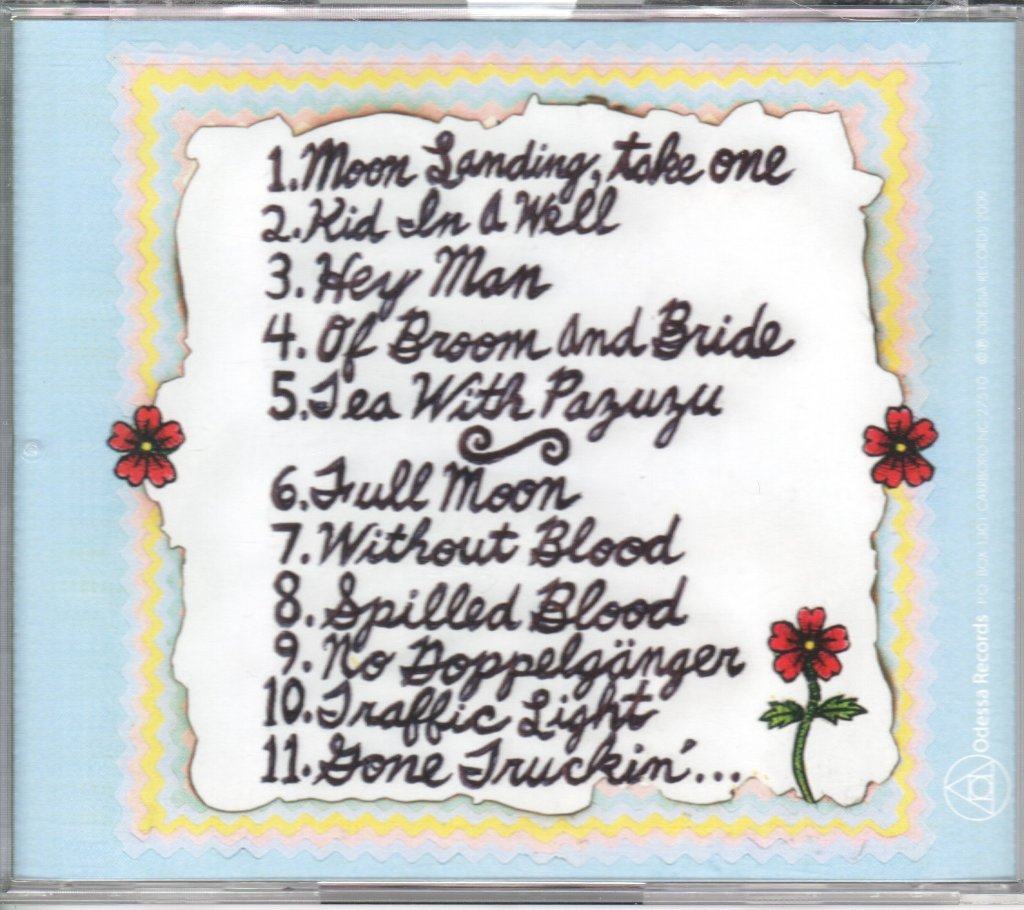 1. Moon Landing, take one
2. Kid In A Well
3. Hey Man
4. Of Broom And Bride
5. Tea With Pazuzu
6. Full Moon
7. Without Blood
8. Spilled Blood
9. No Doppelgänger
10. Traffic Light
11. Gone Truckin'...
Odessa Records PO BOX 1301 CARRBORO NC 27510 ©℗ ODESSA RECORDS 2009